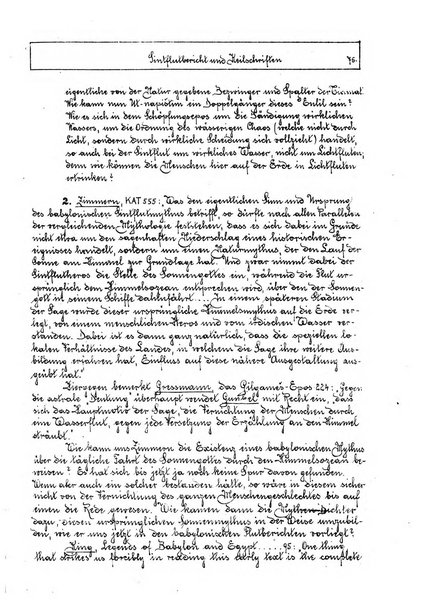 Sintflutbericht und Keilschriften 76.
eigentliche von der Natur gegebene Bezwinger und Spalter der Tiamat.
Wie kann nun Ut-napištim ein Doppelgänger dieses Enlil sein?
Wie es sich in dem Schöpfungsepos um die Bändigung wirklichen
Wassers, um die Ordnung des wässerigen Chaos (welche nicht durch
Licht, sondern durch wirkliche Scheidung sich vollzieht) handelt,
so auch bei der Sintflut um wirkliches Wasser, nicht um Lichtfluten;
denn wie können die Menschen hier auf der Erde in Lichtfluten
ertrinken?
2. Zimmern, KAT 555: „Was den eigentlichen Sinn und Ursprung
des babylonischen Sintflutmythus betrifft, so dürfte nach allen Parallelen
der vergleichenden Mythologie feststehen, dass es sich dabei im Grunde
nicht etwa um den sagenhaften Niederschlag eines historischen Er-
eignisses handelt, sondern um einen Naturmythus, der den Lauf der
Sonne am Himmel zur Grundlage hat. Und zwar nimmt dabei der
Sintflutheros die Stelle des Sonnengottes ein, während die Flut ur-
sprünglich dem Himmelsozean entsprechen wird, über den der Sonnen-
gott in seinem Schiffe dahinfährt .... In einem späteren Stadium
der Sage wurde dieser ursprüngliche Himmelsmythus auf die Erde ver-
legt, von einem menschlichen Heros und vom irdischen Wasser ver-
standen. Dabei ist es dann ganz natürlich, dass die speziellen lo-
kalen Verhältnisse des Landes, in welchem die Sage ihre weitere Aus-
bildung erfahren hat, Einfluss auf diese nähere Ausgestaltung aus-
geübt hat.“
Hiergegen bemerkt Gressmann, das Gilgameš-Epos 224: „Gegen
die astrale Deutung überhaupt wendet Gunkel mit Recht ein, dass
sich das Hauptmotiv der Sage, die Vernichtung der Menschen durch
eine Wasserflut, gegen jede Versetzung der Erzählung an den Himmel
sträubt.“
Wie kann uns Zimmern die Existenz eines babylonischen Mythus
über die tägliche Fahrt des Sonnengottes durch den Himmelsozean be-
weisen? Es hat sich bis jetzt ja noch keine Spur davon gefunden.
Wenn aber auch ein solcher bestanden hätte, so wäre in diesem sicher
nicht von der Vernichtung des ganzen Menschengeschlechtes bis auf
einen die Rede gewesen. Wie kamen dann die Mythen-Dichter
dazu, diesen ursprünglichen Sonnenmythus in der Weise umzubil-
den, wie er uns jetzt in den babylonischen Flutberichten vorliegt?
King, Legends of Babylon and Egypt .... 95: One thing
that strikes us forcibly in reading this early text is the complete